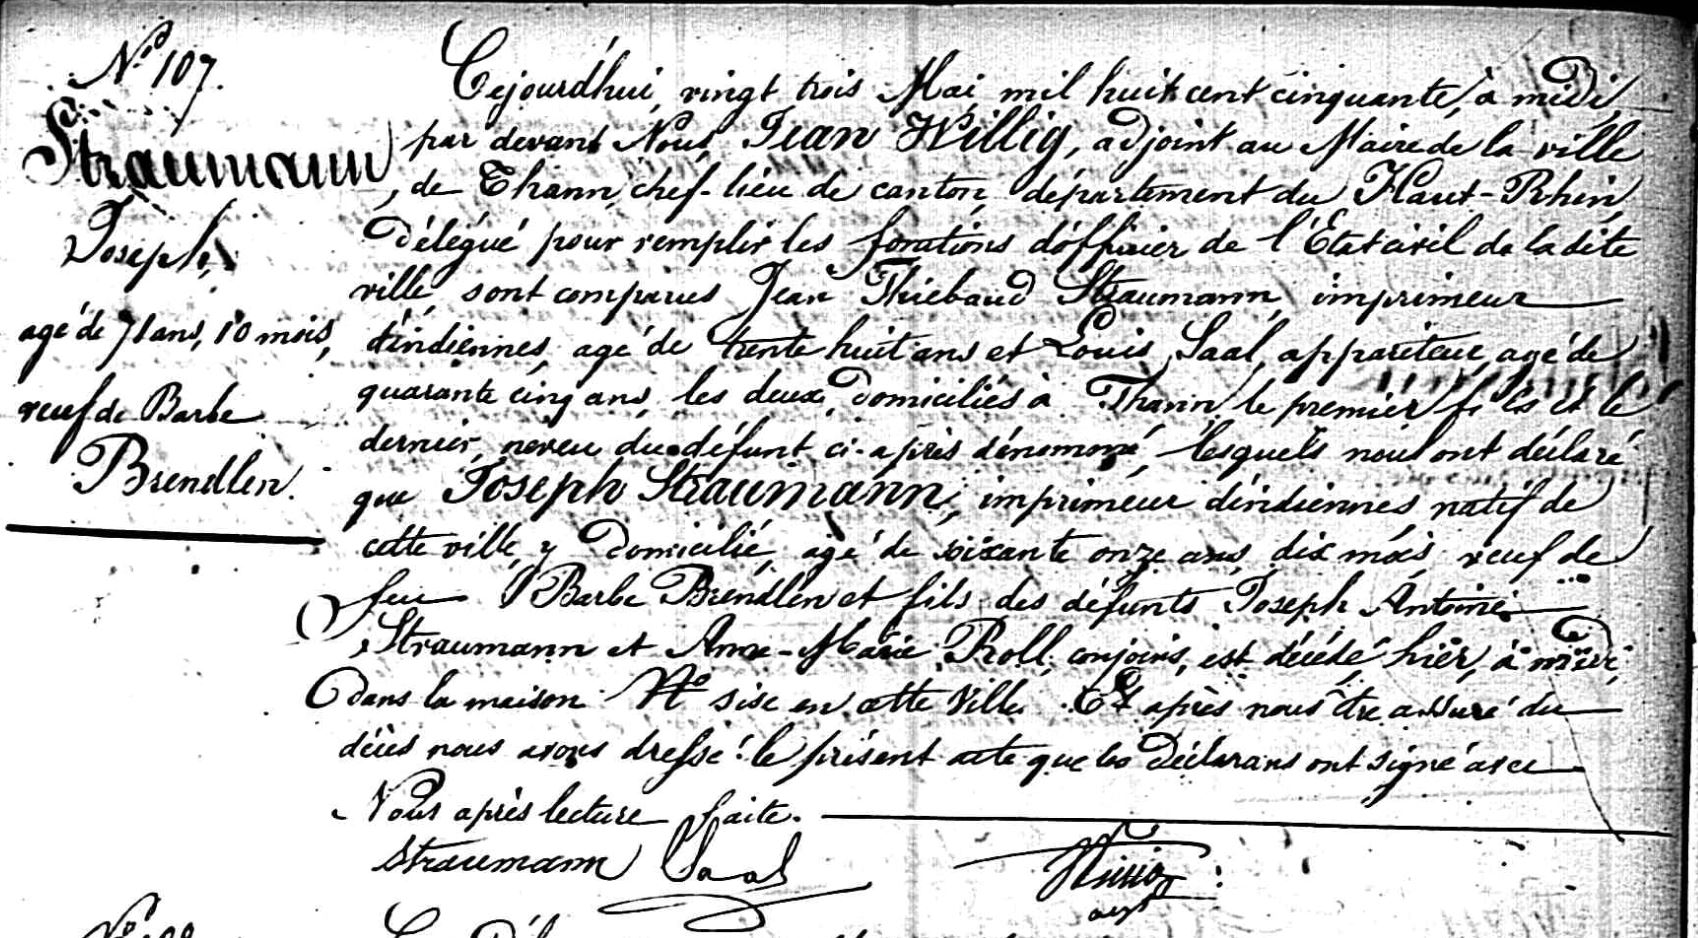 No 107.
Straumann
Joseph,
agé de 71 ans, 10 mois,
veuf de Barbe
Brendlen.
Cejourd'hui, vingt trois Mai, mil huit cent cinquante, à midi,
par devant Nous, Jean Willig, adjoint au Maire de la ville
de Thann, chef-lieu de canton, département du Haut-Rhin,
délégué pour remplir les fonctions d'officier de l'Etat civil de ladite
ville, sont comparus Jean Thiebaud Straumann, imprimeur
d'indiennes, agé de trente huit ans et Louis Saal, appariteur, agé de
quarante cinq ans, les deux domiciliés à Thann, le premier fils et le
dernier, neveu du défunt ci-après dénommé, lesquels nous ont déclaré
que Joseph Straumann, imprimeur d'indiennes natif de
cette ville, y domicilié, agé de soixante onze ans, dix mois, veuf de
feu Barbe Brendlen et fils des défunts Joseph Antoine
Straumann et Anne-Marie Roll, conjoins, est décédé hier, à midi,
dans la maison No sise en cette ville. Et après nous être assuré du
décès nous avons dressé le présent acte que les déclarans ont signé avec
Nous après lecture faite.
Straumann Saal Willig
adjt